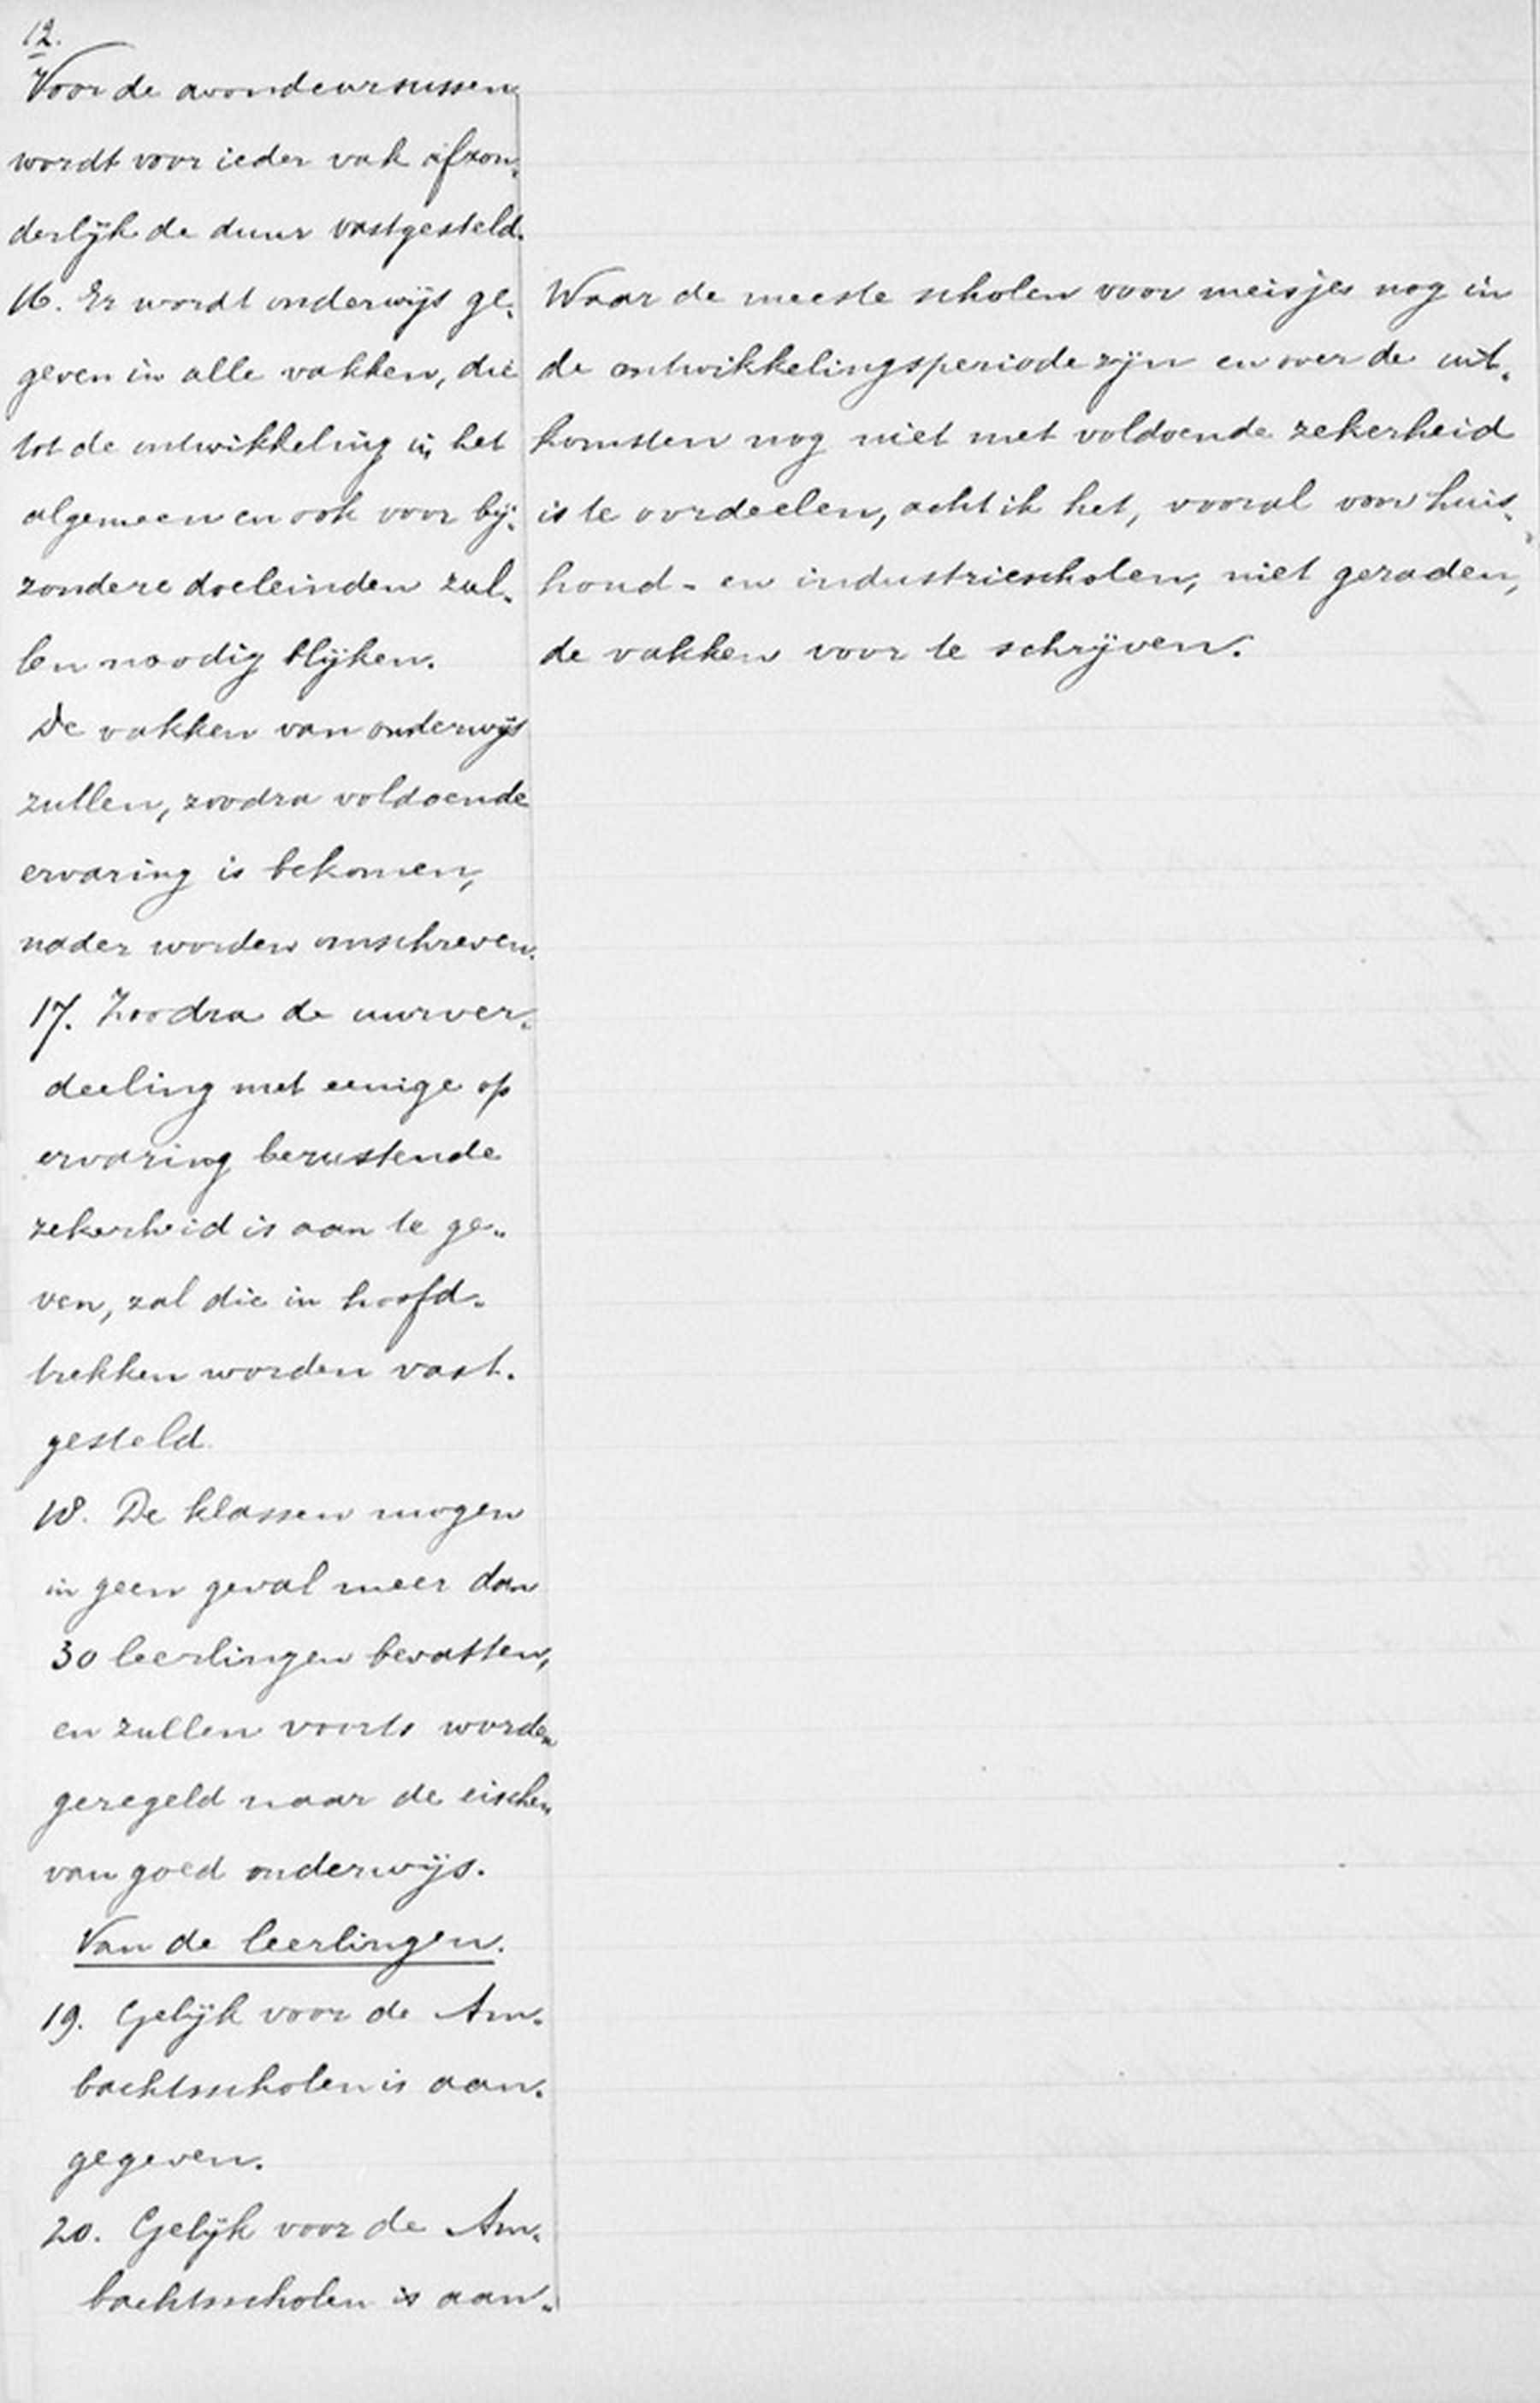 12.
Voor de avondcursussen
wordt voor ieder vak afzon-
derlijk de duur vastgesteld.
16. Er wordt onderwijs ge-
geven in alle vakken, die
tot de ontwikkeling in het
algemeen en ook voor bij-
zondere doeleinden zul-
len noodig blijken.
De vakken van onderwijs
zullen, zoodra voldoende
ervaring is bekomen,
nader worden omschreven.
17. Zoodra de uurver-
deeling met eenige op
ervaring berustende
zekerheid is aan te ge-
ven, zal die in hoofd-
trekken worden vast-
gesteld
18. De klassen mogen
in geen geval meer dan
30 leerlingen bevatten,
en zullen voorts worden
geregeld naar de eischen
van goed onderwijs.
Van de leerlingen.
19. Gelijk voor de Am-
bachtsscholen is aan-
gegeven.
20. Gelijk voor de Am-
bachtsscholen is aan-
Waar de meeste scholen voor meisjes nog in
de ontwikkelingsperiode zijn en over de uit-
komsten nog niet met voldoende zekerheid
is te oordeelen, acht ik het, vooral voor huis-
houd- en industriescholen, niet geraden,
de vakken voor te schrijven.